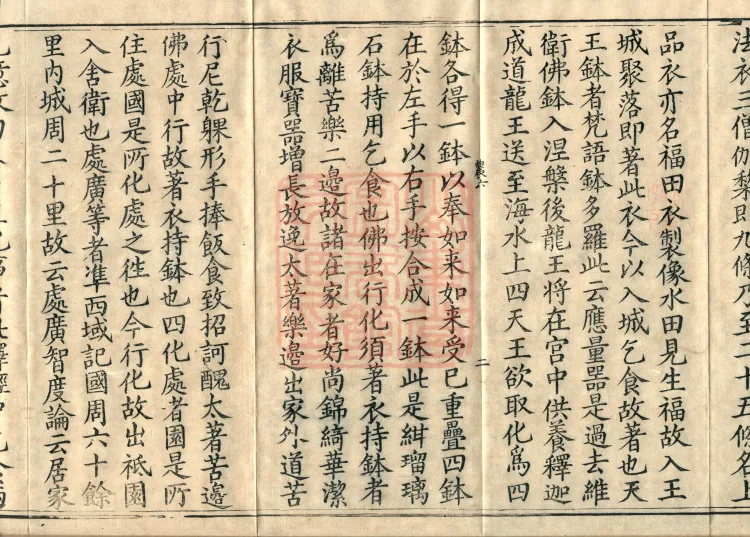 法衣三僧伽黎即九條乃至二十五條名上
品衣亦名福田衣製像水田見生福故入王
城聚落即著此衣今以入城乞食故著也天
王鉢者梵語鉢多羅此云應量器是過去維
衛佛鉢入涅槃後龍王将在宫中供養釋迦
成道龍王送至海水上四天王欲取化爲四
鉢各得一鉢以奉如来如来受已重疊四鉢
在於左手以右手按合成一鉢此是紺瑠璃
石鉢持用乞食也佛出行化須著衣持鉢者
爲離苦樂二邊故諸在家者好尚錦綺華潔
衣服寶器增長放逸太著樂邊出家外道苦
行尼乾躶形手捧飯食致招訶醜太著苦邊
佛處中行故著衣持鉢也四化處者園是所
住處國是所化處之徃也今行化故出祇園
入舍衛也處廣等者凖西域記國周六十餘
里内城周二十里故云處廣智度論云居家
農六
二